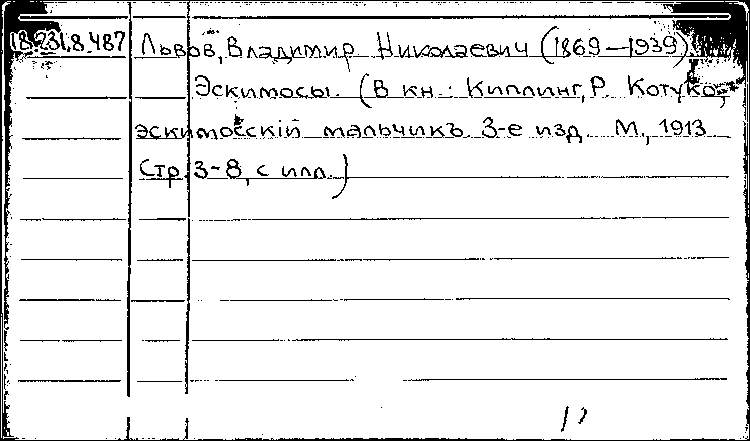 18.231.8.487 Львов, Владимир Николаевич (1869—1939).
Эскимосы. (В кн.: Киплинг, Р. Котуко,
эскимосскій мальчикъ. 3-е изд. М., 1913
Стр. 3-8, с илл.)